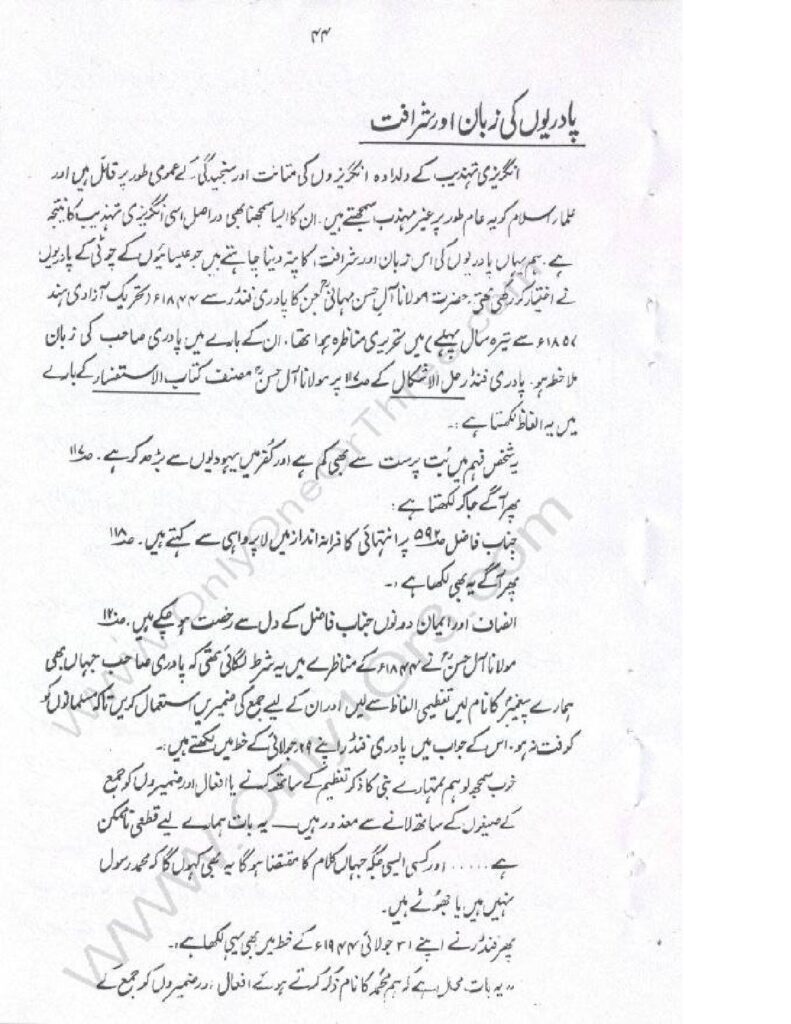 ۴۴
پادریوں کی زبان اور شرافت
انگریزی تہذیب کے دلدادہ انگریزوں کی متانت اور سنجیدگی کے عمومی طور پر قائل ہیں اور
علمار اسلام کو یہ عام طور پر غیر مہذب سمجھتے ہیں۔ ان کا ایسا سمجھنا بھی دراصل اسی انگریزی تہذیب کا نتیجہ
ہے۔ ہم یہاں پادریوں کی اس زبان اور شرافت کا پتہ دینا چاہتے ہیں جو عیسائیوں کے چوٹی کے پادریوں
نے اختیار کر رکھی تھی۔ حضرت مولانا آل حسن مہانیؒ جن کا پادری فنڈر سے ۱۸۴۴ء (تحریک آزادی ہند
۱۸۵۷ء سے تیرہ سال پہلے) میں تحریری مناظرہ ہوا تھا، ان کے بارے میں پادری صاحب کی زبان
ملاحظہ ہو۔ پادری فنڈر حل الاشکال کے صـ۱۱۷ پر مولانا آل حسنؒ مصنف کتاب الاستفسار کے بارے
میں یہ الفاظ لکھتا ہے :۔
یہ شخص فہم میں بُت پرست سے بھی کم ہے اور کفر میں یہودیوں سے بڑھ کر ہے۔ صـ۱۱۷
پھر آگے جا کر لکھتا ہے :
جناب فاضل صـ۵۹۲ پر انتہائی کافرانہ انداز میں لاپرواہی سے کہتے ہیں۔ صـ۱۱۸
پھر آگے یہ بھی لکھا ہے :۔
انصاف اور ایمان دونوں جناب فاضل کے دل سے رخصت ہو چکے ہیں۔ صـ۱۲۰
مولانا آل حسنؒ نے ۱۸۴۴ء کے مناظرے میں یہ شرط لگائی تھی کہ پادری صاحب جہاں بھی
ہمارے پیغمبر کا نام لیں تعظیمی الفاظ سے لیں اور ان کے لیے جمع کی ضمیریں استعمال کریں تاکہ مسلمانوں کو
کوفت نہ ہو۔ اس کے جواب میں پادری فنڈر اپنے ۲۹ جولائی کے خط میں لکھتے ہیں :۔
خوب سمجھ لو ہم تمہارے نبی کا ذکر تعظیم کے ساتھ کرنے یا افعال اور ضمیروں کو جمع
کے صیغوں کے ساتھ لانے سے معذور ہیں ـــ یہ بات ہمارے لیے قطعی ناممکن
ہے ..... اور کسی ایسی جگہ جہاں کلام کا مقتضا ہو گا یہ بھی کہوں گا کہ محمد رسول
نہیں ہیں یا جھوٹے ہیں۔
پھر فنڈر نے اپنے ۳۱ جولائی ۱۹۴۴ء کے خط میں بھی یہی لکھا ہے :۔
" یہ بات محال ہے کہ ہم محمد کا نام ذکر کرتے ہوئے افعال اور ضمیروں کو جمع کے
www.OnlyOneOrThree.com
www.Only1Or3.com